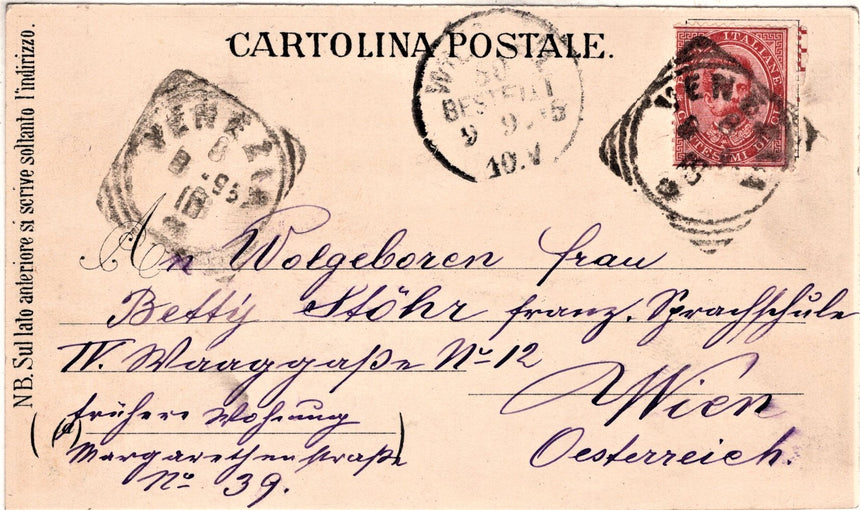 CARTOLINA POSTALE.
NB. Sul lato anteriore si scrive soltanto l'indirizzo.
ITALIANE
CENTESIMI DIECI
VENEZIA
8
9
95
VENEZIA
8
BESTELLT
9 9 95
10.V
An Wolgeboren frau
Betty Stöhr franz. Sprachschule
IV. Waaggaße No 12
Wien
Oesterreich.
(frühere Wohnung
Margarethenstraße)
No 39.